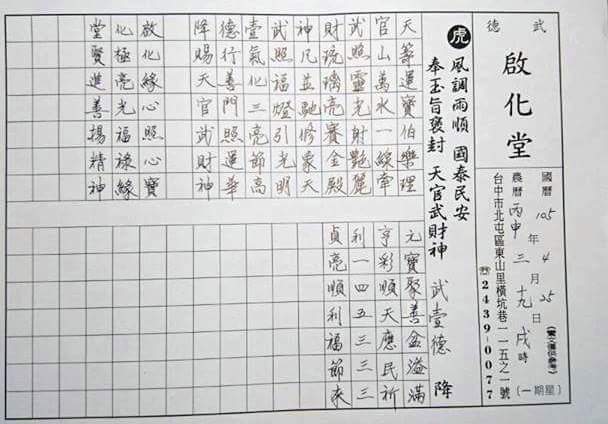 武德
啟化堂
國曆 105 年 4 月 25 日
農曆 丙申 三 十九 戌時
(星期一)
台中市北屯區東山里橫坑巷一一五之一號
☎2439-0077
虎 風調雨順 國泰民安
奉玉旨褒封 天官武財神 武壹德 降
天等運寶伯樂理
官山萬水一線牽
武照靈光射艷麗
財琉璃亮賽金殿
神凡並馳修象天
武照福燈引光明
壹氣化三亮節高
德行善門照運華
降賜天官武財神
啟化緣心照心寶
化極亮光福祿緣
堂賢進善揚精神
元寶聚善盆溢滿
亨彩順天應民祈
利一四五三三三
貞亮順利福節來